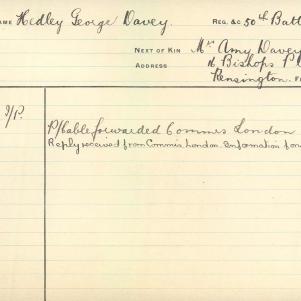 AME Hedley George Davey. REG. &C 50th Batt
NEXT OF KIN Mrs Amy Davey
ADDRESS Bishops
Kensington.
I/P. P/Cable forwarded Commis London
Reply received from Commis. London. Information for